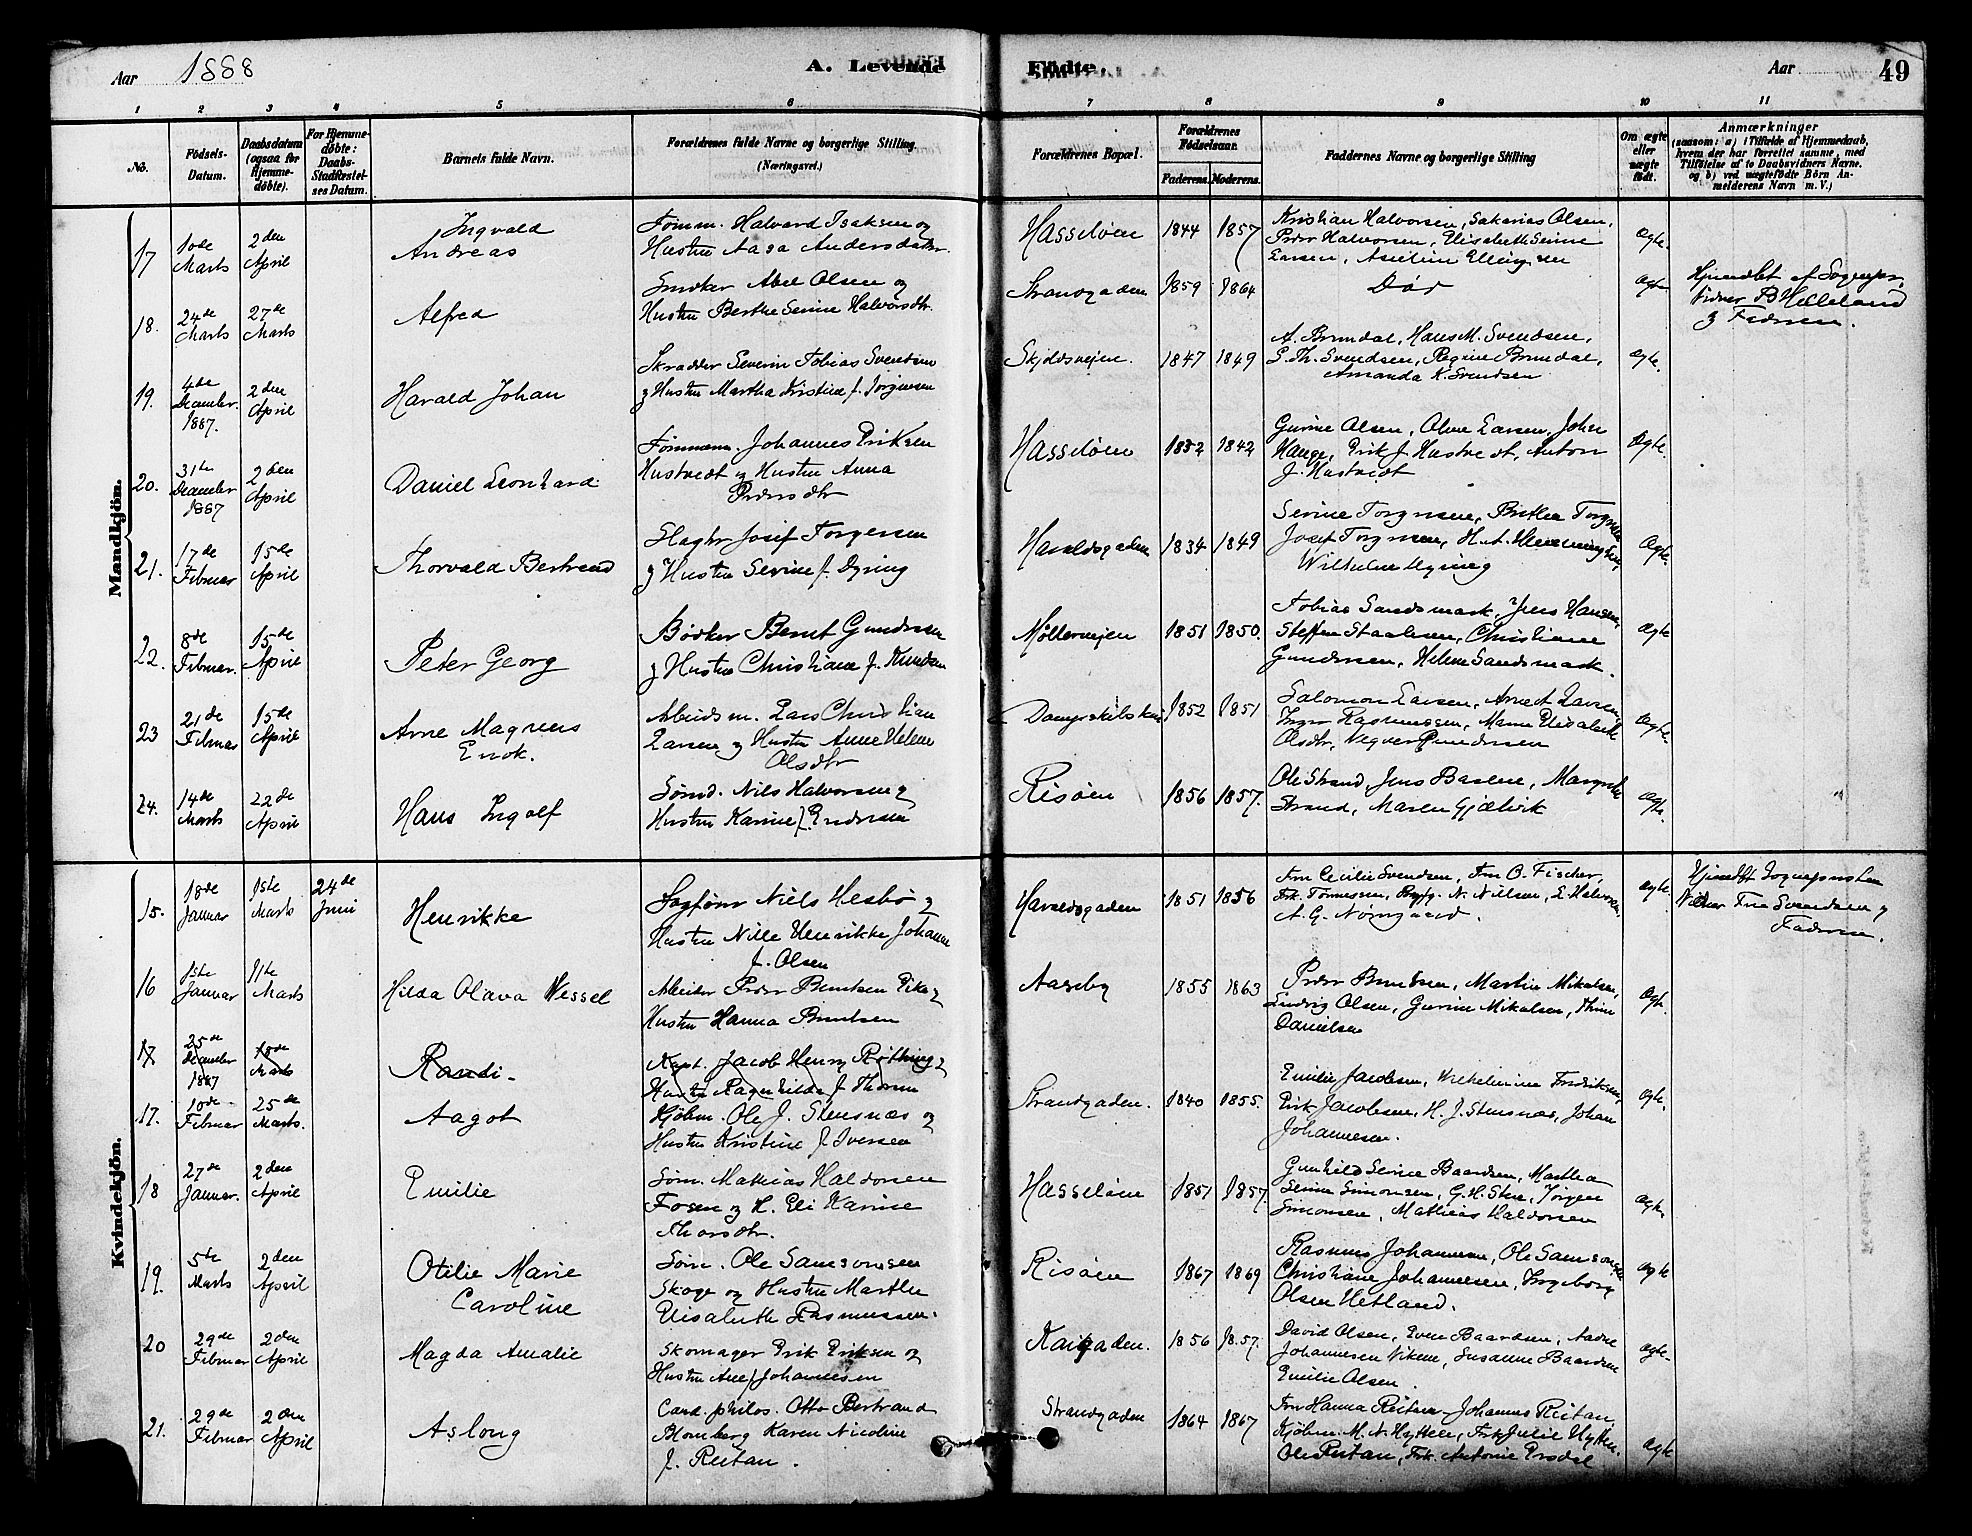 Aar 1888
A. Levende Fødte.
Aar
49
1 2 3 4 5 6 7 8 9 10 11
No.
Fødsels-Datum.
Daabsdatum (ogsaa for Hjemmedøbte).
For Hjemmedøbte: Daabs-Stadfæstelses Datum.
Barnets fulde Navn.
Forældrenes fulde Navne og borgerlige Stilling. (Næringsvei.)
Forældrenes Bopæl.
Forældrenes Fødselsaar.
Faderens. Moderens.
Faddernes Navne og borgerlige Stilling
Om ægte eller uægte født.
Anmærkninger
(saasom: a) i Tilfælde af Hjemmedaab,
hvem der har forrettet samme, med
Tilføielse af to Daabsvidners Navne.
og b) ved uægtefødte Børn Anmelderens Navn m. V.)
Mandkjön.
17 10de Marts 2den April Ingvald Andreas
Tømm. Halvard Isaksen og
Hustru Aasa Andersdatter
Hasseløen 1844 1857
Kristian Halvorsen, Sakarias Olsen,
Peder Halvorsen, Elisabeth Serine
Larsen, Aseline Ellingsen
Ægte.
18. 24de Marts 27de Marts Alfred
Snedker Abel Olsen og
Hustru Berthe Serine Halvorsdtr.
Strandgaden 1859 1864 Død Ægte
Hjemdøbt af Sogneprs.
Vidner B Helleland
og Faderen.
19. 4de December 1887. 2den April Harald Johan
Skrædder Severin Tobias Svendsen
og Hustru Martha Kristine f. Jørgensen
Skjoldsvejen. 1847 1849
A. Brundal, Hans M. Svendsen,
S. Th. Svendsen, Regine Brundal,
Amanda K. Svendsen
Ægte.
20. 31te December 1887 2den April Daniel Leonhard
Tømmerm. Johannes Eriksen
Hustvedt og Hustru Anna
Pedersdtr
Hasseløen 1832 1842
Gurine Olsen, Oline Larsen, John
Hauge, Erik J. Hustvedt, Anton
J. Hustvedt
Ægte.
21. 17de Februar 15de April Thorvald Bertrand
Slagter Josef Torgersen
og Hustru Serine f. Dyring
Haraldsgaden 1834 1849
Serine Torgersen, Berthe Torgersen
Josef Torgersen, H. A. Henningsen,
Wilhelm Dyring
Ægte.
22. 8de Februar. 15de April Peter Georg
Bødker Bernt Gundersen
og Hustru Christiane f. Knudsen
Møllervejen 1851 1850.
Tobias Sandsmark, Jens Hansen,
Steffen Staalesen, Christiane
Gundersen, Helene Sandsmark.
Ægte
23 21de Februar 15de April Arne Magnus Enok.
Arbeidsm. Lars Christian
Larsen og Hustru Anne Helene
Olsdtr
1852 1851
Salomon Larsen, Arnet Larsen,
Inger Rasmussen, Marie Elisabeth
Olsdtr, Gundersen
Ægte.
24. 14de Marts 22de April Hans Ingolf
Sømd. Nils Halvorsen og
Hustru Karine f. Endresen
Risøen 1856 1857.
Ole Strand, Jens Baslene, Margrethe
Strand, Maren Gjælvik
Ægte.
Kvindekjön.
15. 18de Januar 1ste Marts 24de Juni Henrikke
Sagfører Niels Hesbø og
Hustru Nille Henrikke Johanne
f. Olsen
Haraldsgaden 1851 1856
Fru Cecilie Svendsen, Fru O. Fischer,
Frk. Tønnessen, N. Nilsen, E. Halvorsen,
A. G. Nørregaard.
Ægte.
Hjemdøbt Sognepresten
Vidner Fru Svendsen og
Faderen.
16 1ste Januar 11te Marts Hilda Olava Wessel
Arbeider Peder Berntsen Eike og
Hustru Hanna Berntsen
Aaseby 1855 1863
Peder Berntsen, Martin Mikalsen,
Ludvig Olsen, Gurine Mikalsen, Thine
Danielsen
Ægte.
17 25de December 1887 18de Marts Randi.
Kapt. Jacob Henry Røthing og
Hustru Ragnhilda f. Thorsen
17. 10de Februar 25de Marts. Aagot
Kjøbm. Ole J. Stensnæs og
Hustru Kristine f. Iversen
Strandgaden. 1840 1855.
Emilie Jacobsen, Wilhelmine Fredriksen,
Erik Jacobsen, H. J. Stensnæs, Johan
Johannesen.
Ægte.
18 27de Januar. 2den April Emilie
Søm. Mathias Haldorsen
Fosen og H. Eli Karine
Thorsdtr.
Hasseløen 1851 1857
Gunhild Serine Baardsen, Martha
Serine Simonsen, G. H. Stue, Jørgen
Simonsen, Mathias Haldorsen
Ægte.
19. 5te Marts 2den April Otilie Marie Caroline
Søm. Ole Samsonsen
Skoge og Hustru Marthe
Elisabeth Rasmussen.
Risøen 1867 1869
Rasmus Johannesen, Ole Samsonsen
Christiane Johannesen, Ingeborg
Olsen Hetland.
Ægte
20 29de Februar 2den April Magda Amalie
Skomager Erik Eriksen og
Hustru Ane f. Johannesen
Kaigaden. 1856 1857.
David Olsen, Even Baardsen, Aadne
Johannesen Vikene, Susanne Baardsen
Emilie Olsen.
Ægte.
21. 29de Februar 2den April Aslaug
Cand. philos. Otto Bertrand
Blomberg Karen Nicoline
f. Reitan.
Strandgaden 1864 1867
Fru Hanna Reitan, Johannes Reitan,
Kjøbm. M. N. Hytten, Frk Julie Hytten,
Ole Reitan, Frk. Antonie Brodal
Ægte